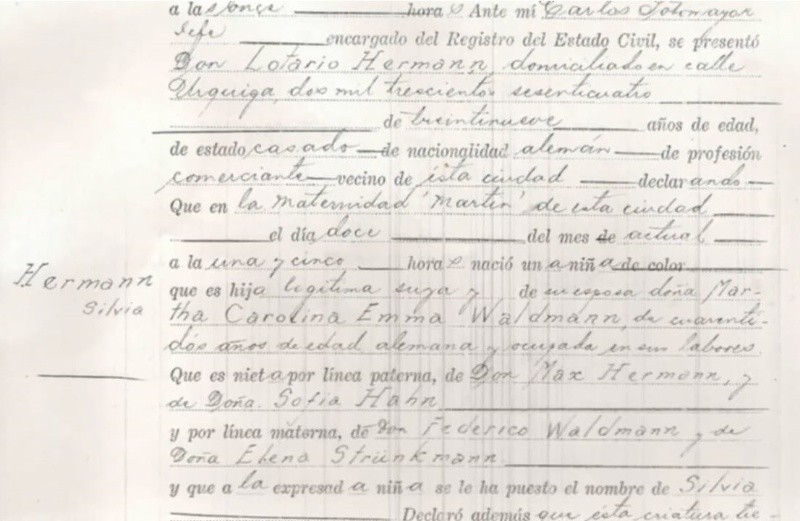 a las once hora s Ante mi Carlos Sotomayor
Jefe encargado del Registro del Estado Civil, se presentó
Don Lotario Hermann, domiciliado en calle
Urquiza, dos mil trescientos sesenticuatro
de treintinueve años de edad,
de estado casado de nacionalidad alemán de profesión
comerciante vecino de ésta ciudad declarando
Que en la maternidad "Martin" de esta ciudad
el día doce del mes de actual
a la una y cinco hora s nació un a niña de color
Hermann
Silvia
que es hija legítima suya y de su esposa doña Mar-
tha Carolina Emma Waldmann, de cuarenti-
dós años de edad alemana y ocupada en sus labores
Que es nieta por línea paterna, de Don Max Hermann, y
de Doña Sofia Hahn
y por línea materna, de Don Federico Waldmann y de
Doña Elena Strünkmann
y que a la expresada niña se le ha puesto el nombre de Silvia
Declaró además que esta criatura tie-